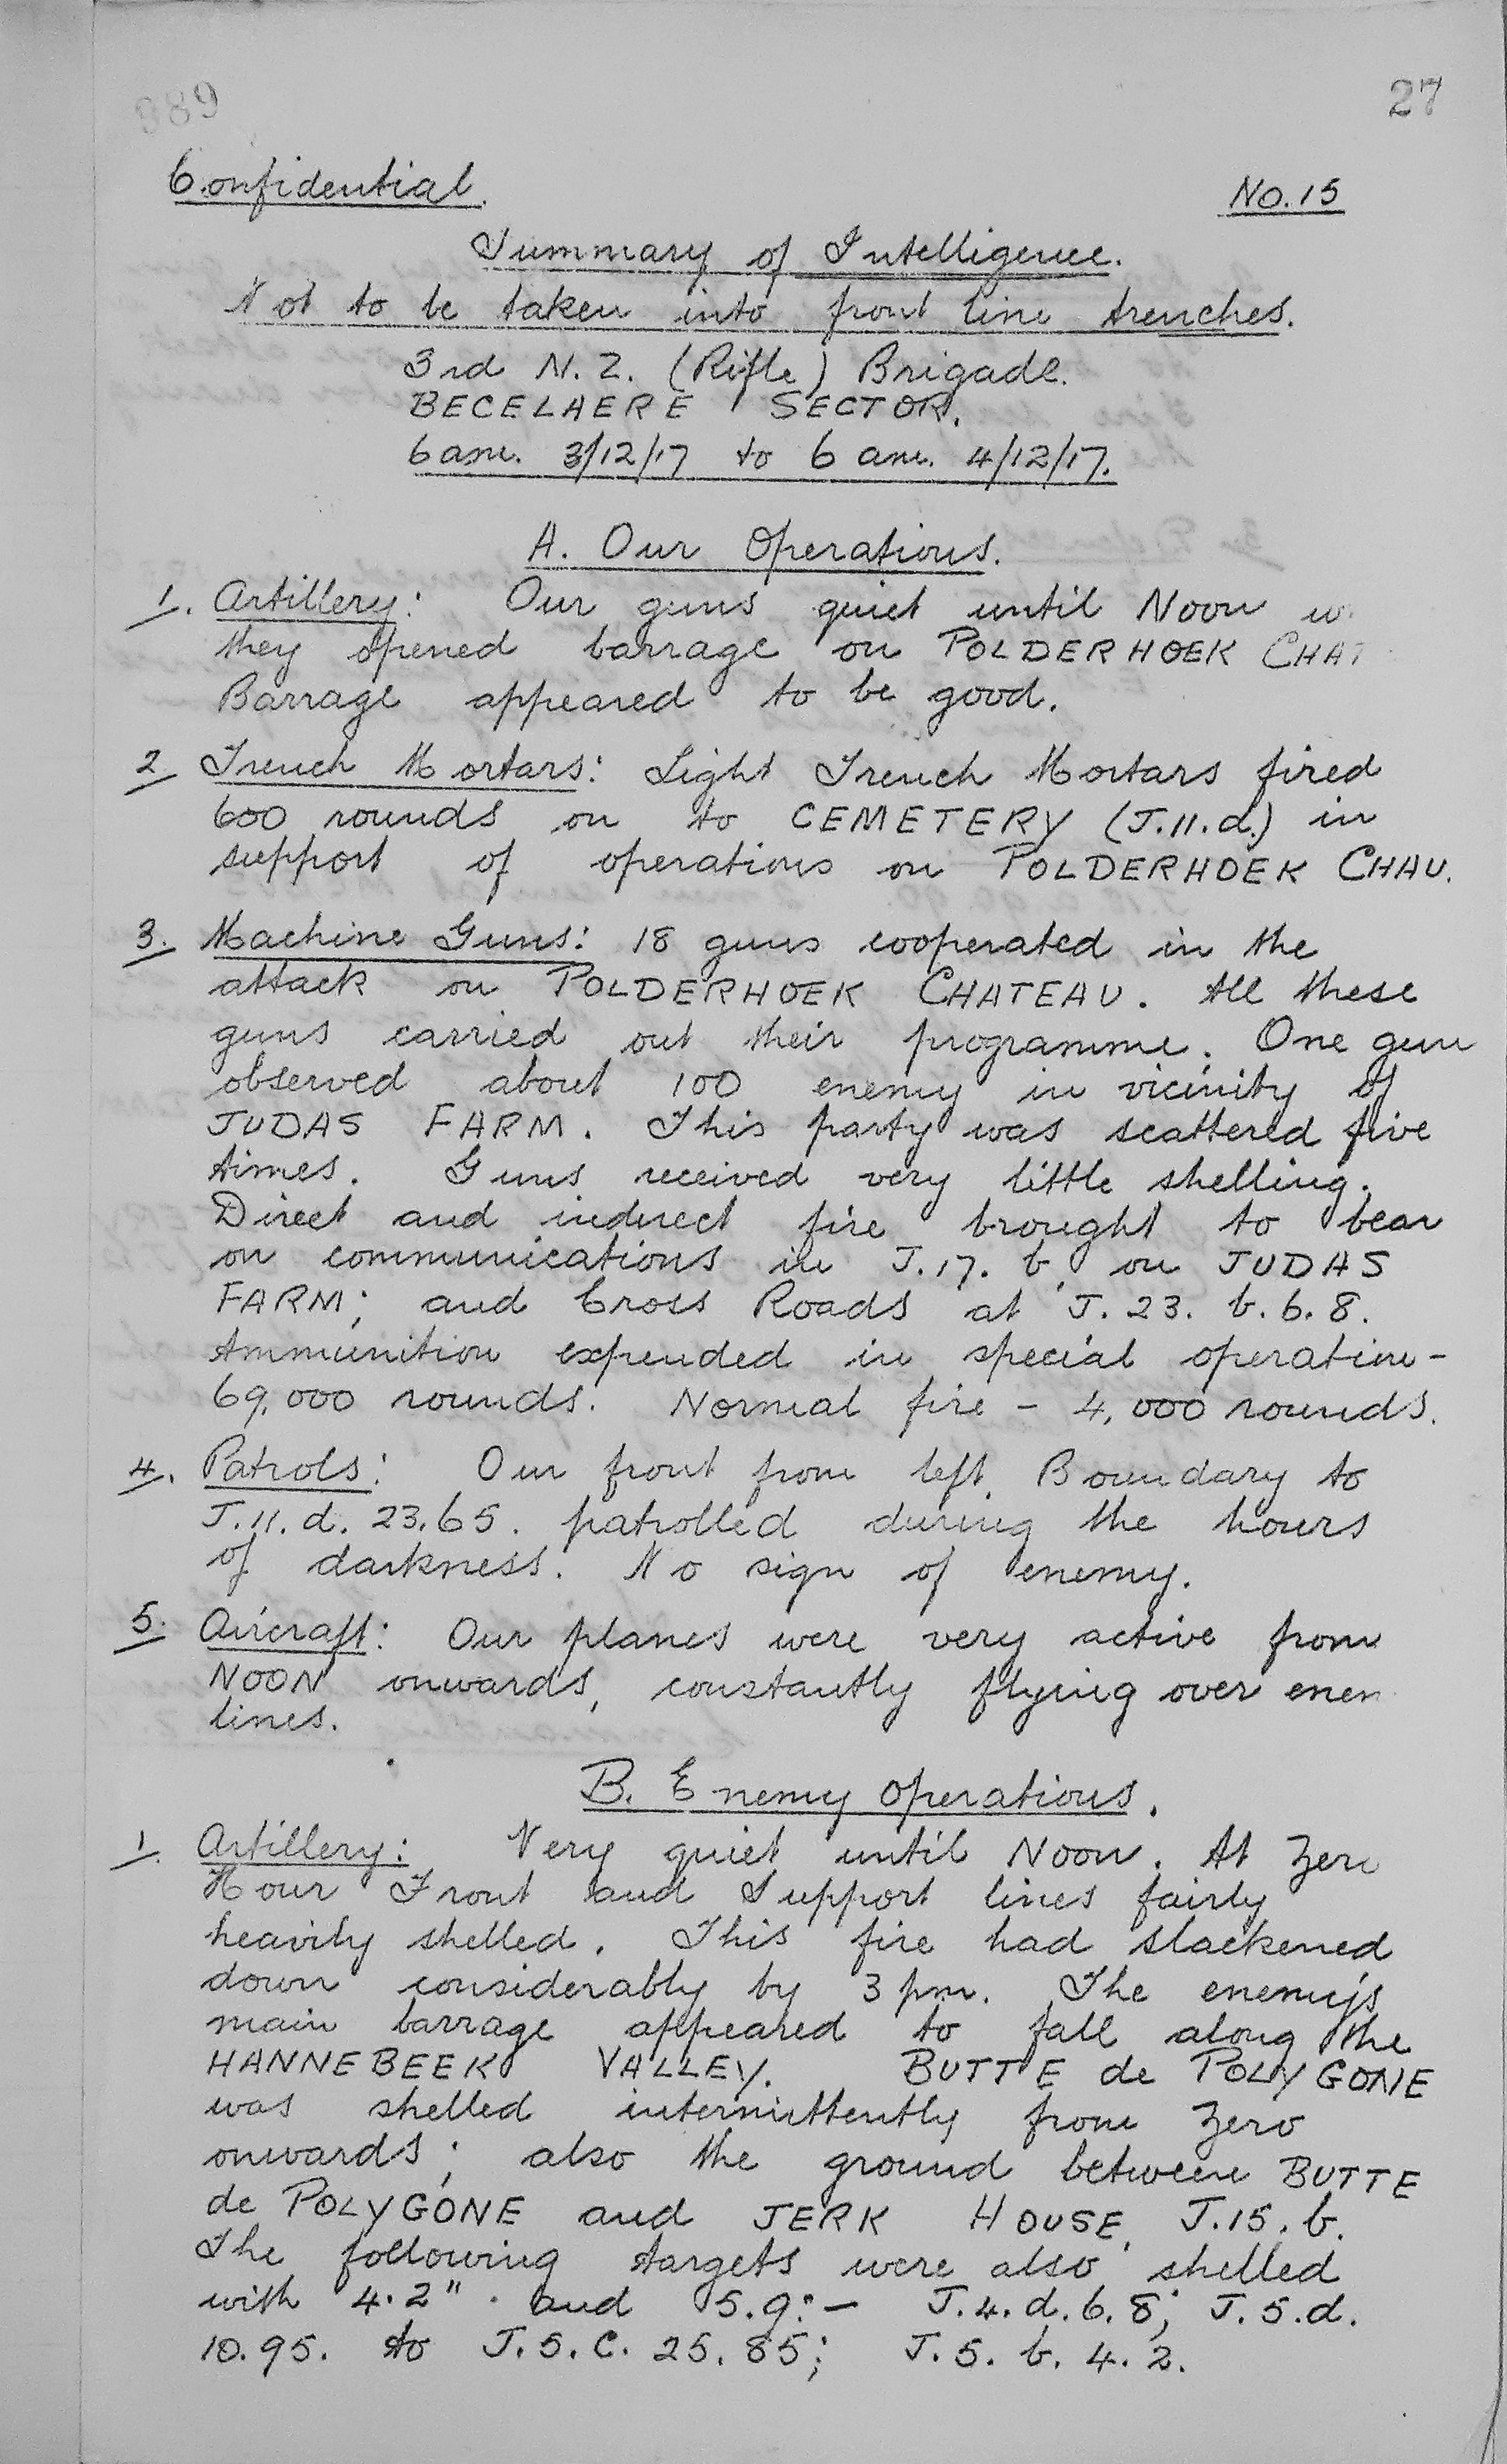 989
27
Confidential.
No. 15
Summary of Intelligence.
Not to be taken into front line trenches.
3rd N. Z. (Rifle) Brigade.
BECELAERE SECTOR.
6 am. 3/12/17 to 6 am. 4/12/17.
A. Our Operations.
1. Artillery: Our guns quiet until Noon w
they opened barrage on POLDERHOEK CHAT
Barrage appeared to be good.
2 Trench Mortars: Light Trench Mortars fired
600 rounds on to CEMETERY (J.11.d.) in
support of operations on POLDERHOEK CHAU.
3. Machine Guns: 18 guns cooperated in the
attack on POLDERHOEK CHATEAU. All these
guns carried out their programme. One gun
observed about 100 enemy in vicinity of
JUDAS FARM. This party was scattered five
times. Guns received very little shelling.
Direct and indirect fire brought to bear
on communications in J.17. b, on JUDAS
FARM; and Cross Roads at J. 23. b. 6. 8.
Ammunition expended in special operation -
69,000 rounds. Normal fire - 4,000 rounds.
4. Patrols: Our front from left Boundary to
J.11. d. 23.65. patrolled during the hours
of darkness. No sign of enemy.
5. Aircraft: Our planes were very active from
NOON onwards, constantly flying over enem
lines.
B. Enemy Operations.
1. Artillery: Very quiet until Noon. At Zero
Hour Front and Support lines fairly
heavily shelled. This fire had slackened
down considerably by 3 pm. The enemy's
main barrage appeared to fall along the
HANNEBEEK VALLEY. BUTTE de POLYGONE
was shelled intermittently from Zero
onwards; also the ground between BUTTE
de POLYGONE and JERK HOUSE, J.15. b.
The following targets were also shelled
with 4.2" and 5.9:- J.4.d.6.8; J.5.d.
10.95. to J.5.C. 25.85; J.5. b. 4. 2.